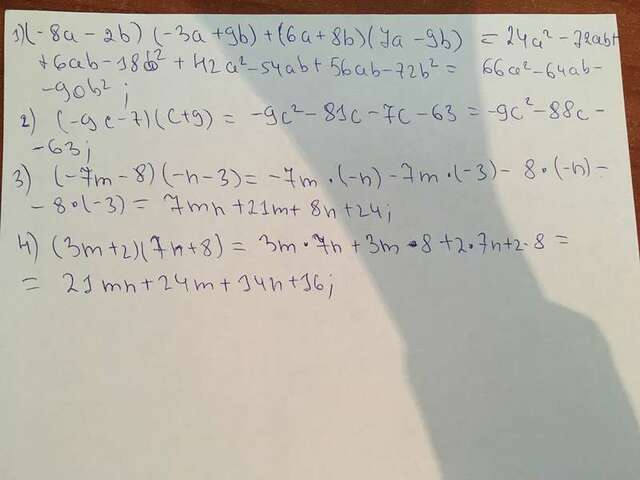 1) (-8a - 2b) (-3a + 9b) + (6a + 8b) (7a - 9b) = 24a² - 72ab +
+ 6ab - 18b² + 42a² - 54ab + 56ab - 72b² = 66a² - 64ab -
- 90b²;
2) (-9c - 7) (c + 9) = -9c² - 81c - 7c - 63 = -9c² - 88c -
- 63;
3) (-7m - 8) (-n - 3) = -7m · (-n) - 7m · (-3) - 8 · (-n) -
- 8 · (-3) = 7mn + 21m + 8n + 24;
4) (3m + 2) (7n + 8) = 3m · 7n + 3m · 8 + 2 · 7n + 2 · 8 =
= 21mn + 24m + 14n + 16;